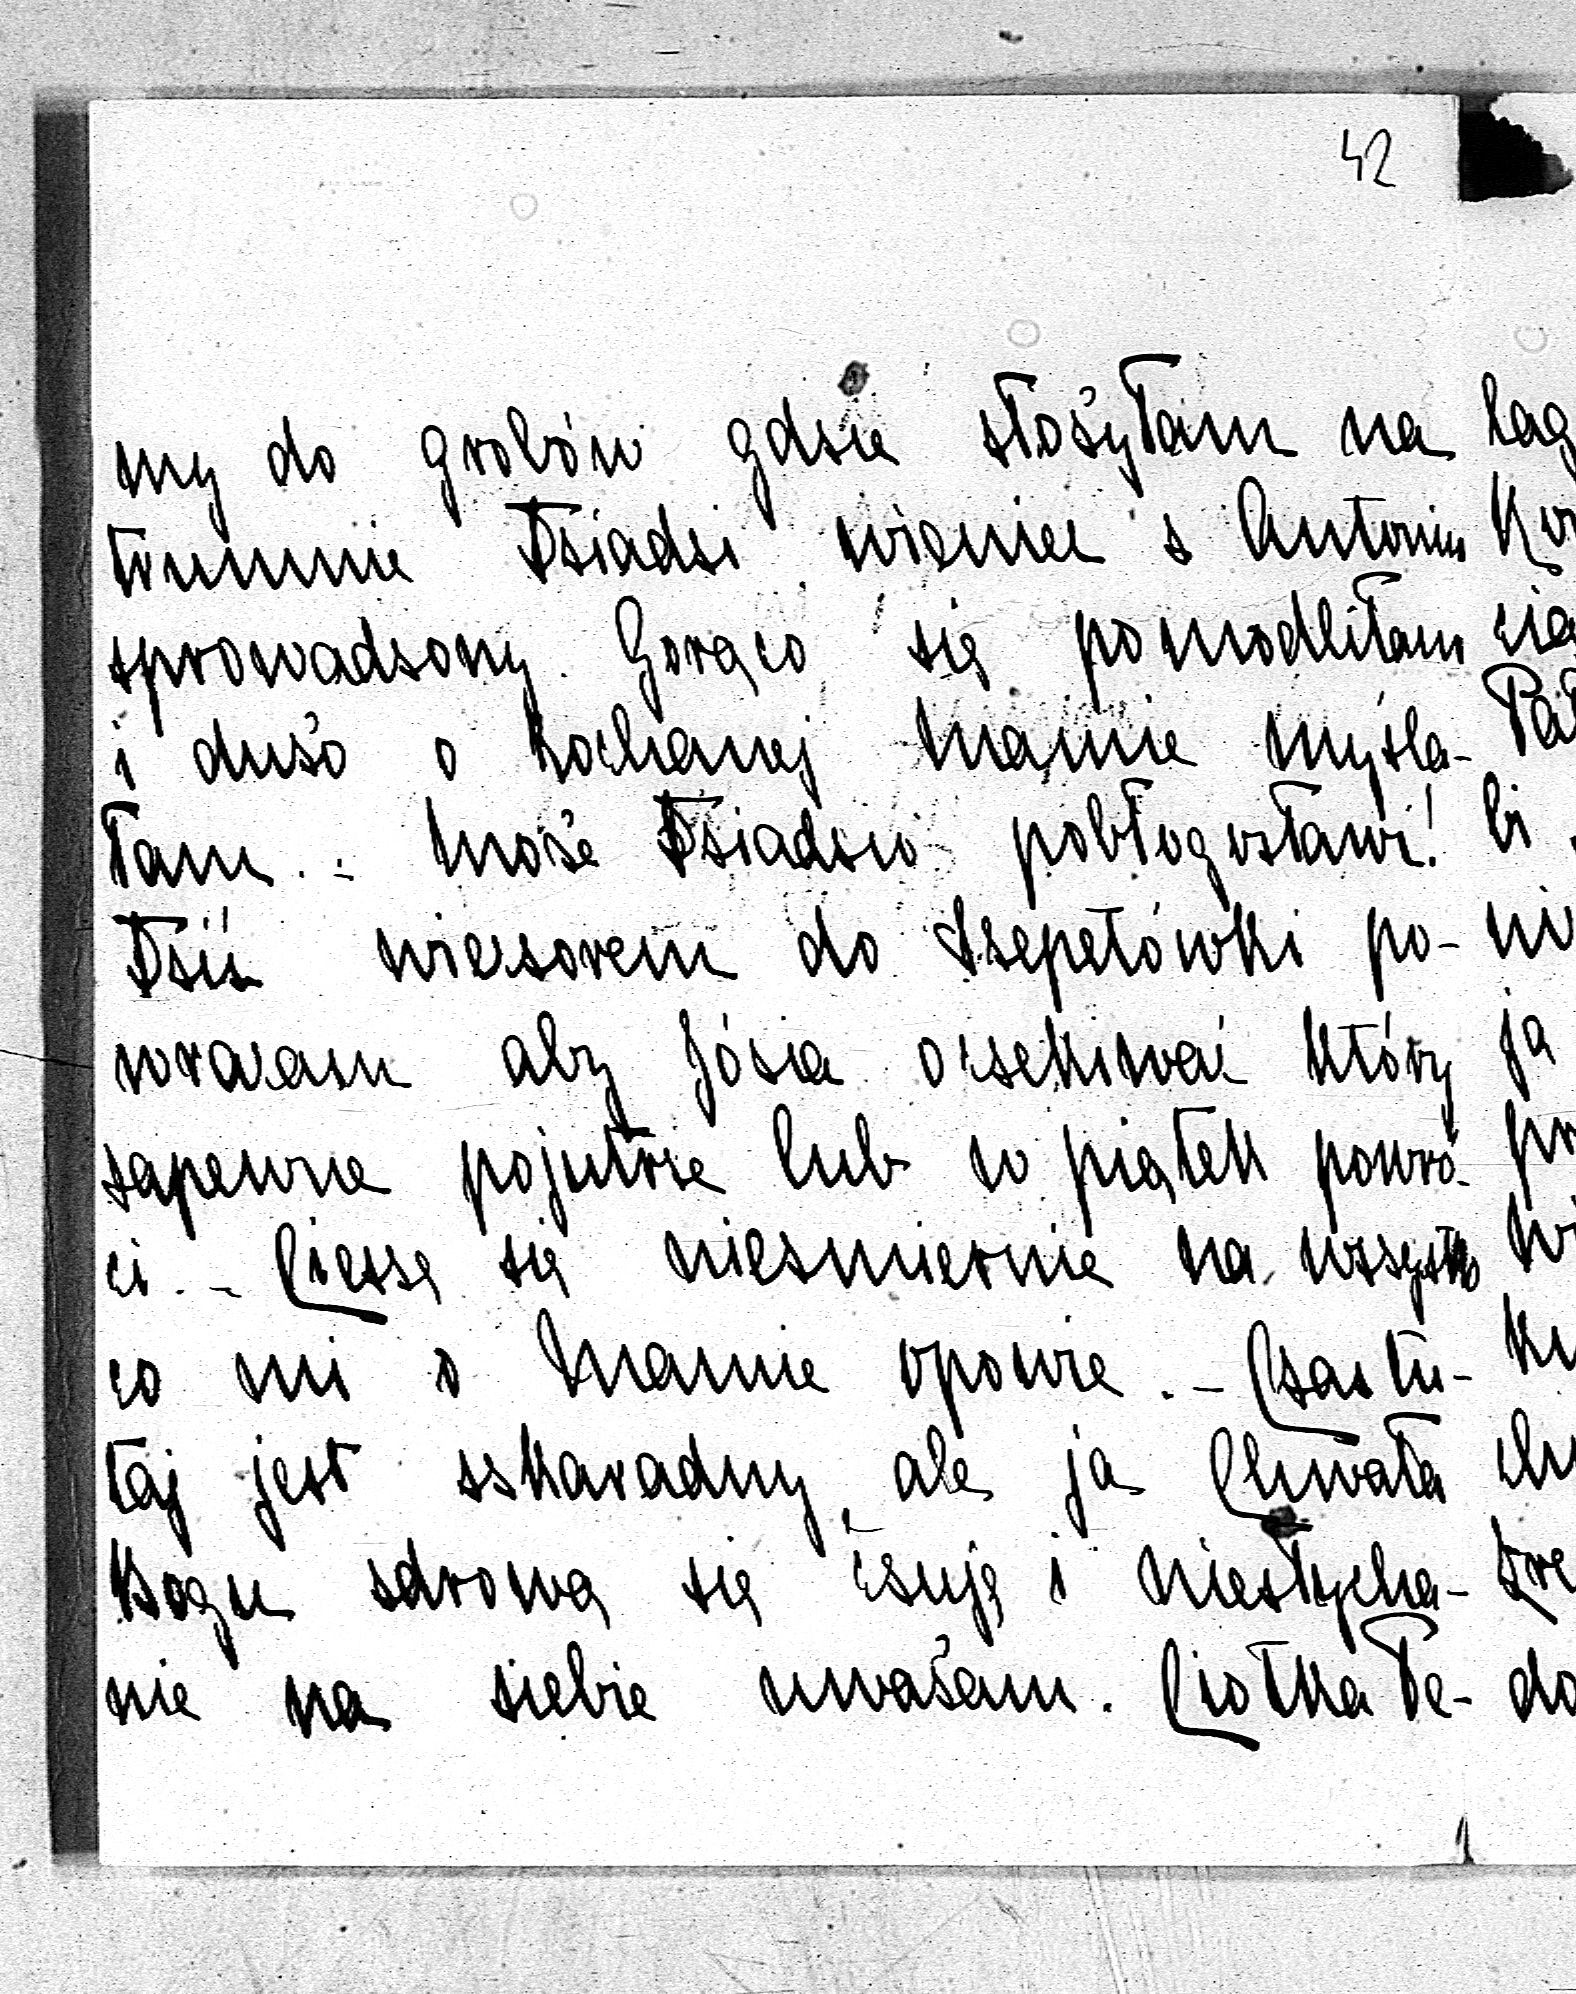 42
my do grobów gdzie złożyłam na
trumnie Dziadzi wieniec z Antonin
sprowadzony. Gorąco się pomodliłam
i dużo o kochanej Mamie myśla-
łam. - Może Dziadzio pobłogosławi!
Dziś wieczorem do Szepetówki po-
wracam aby Józia oczekiwać który
zapewne pojutrze lub w piątek powró-
ci. - Cieszę się niezmiernie na wszystko
co mi o Mamie opowie. - Czas tu-
taj jest szkaradny, ale ja Chwała
Bogu zdrową się czuję i niesłycha-
nie na siebie uważam. Ciotka Pe-